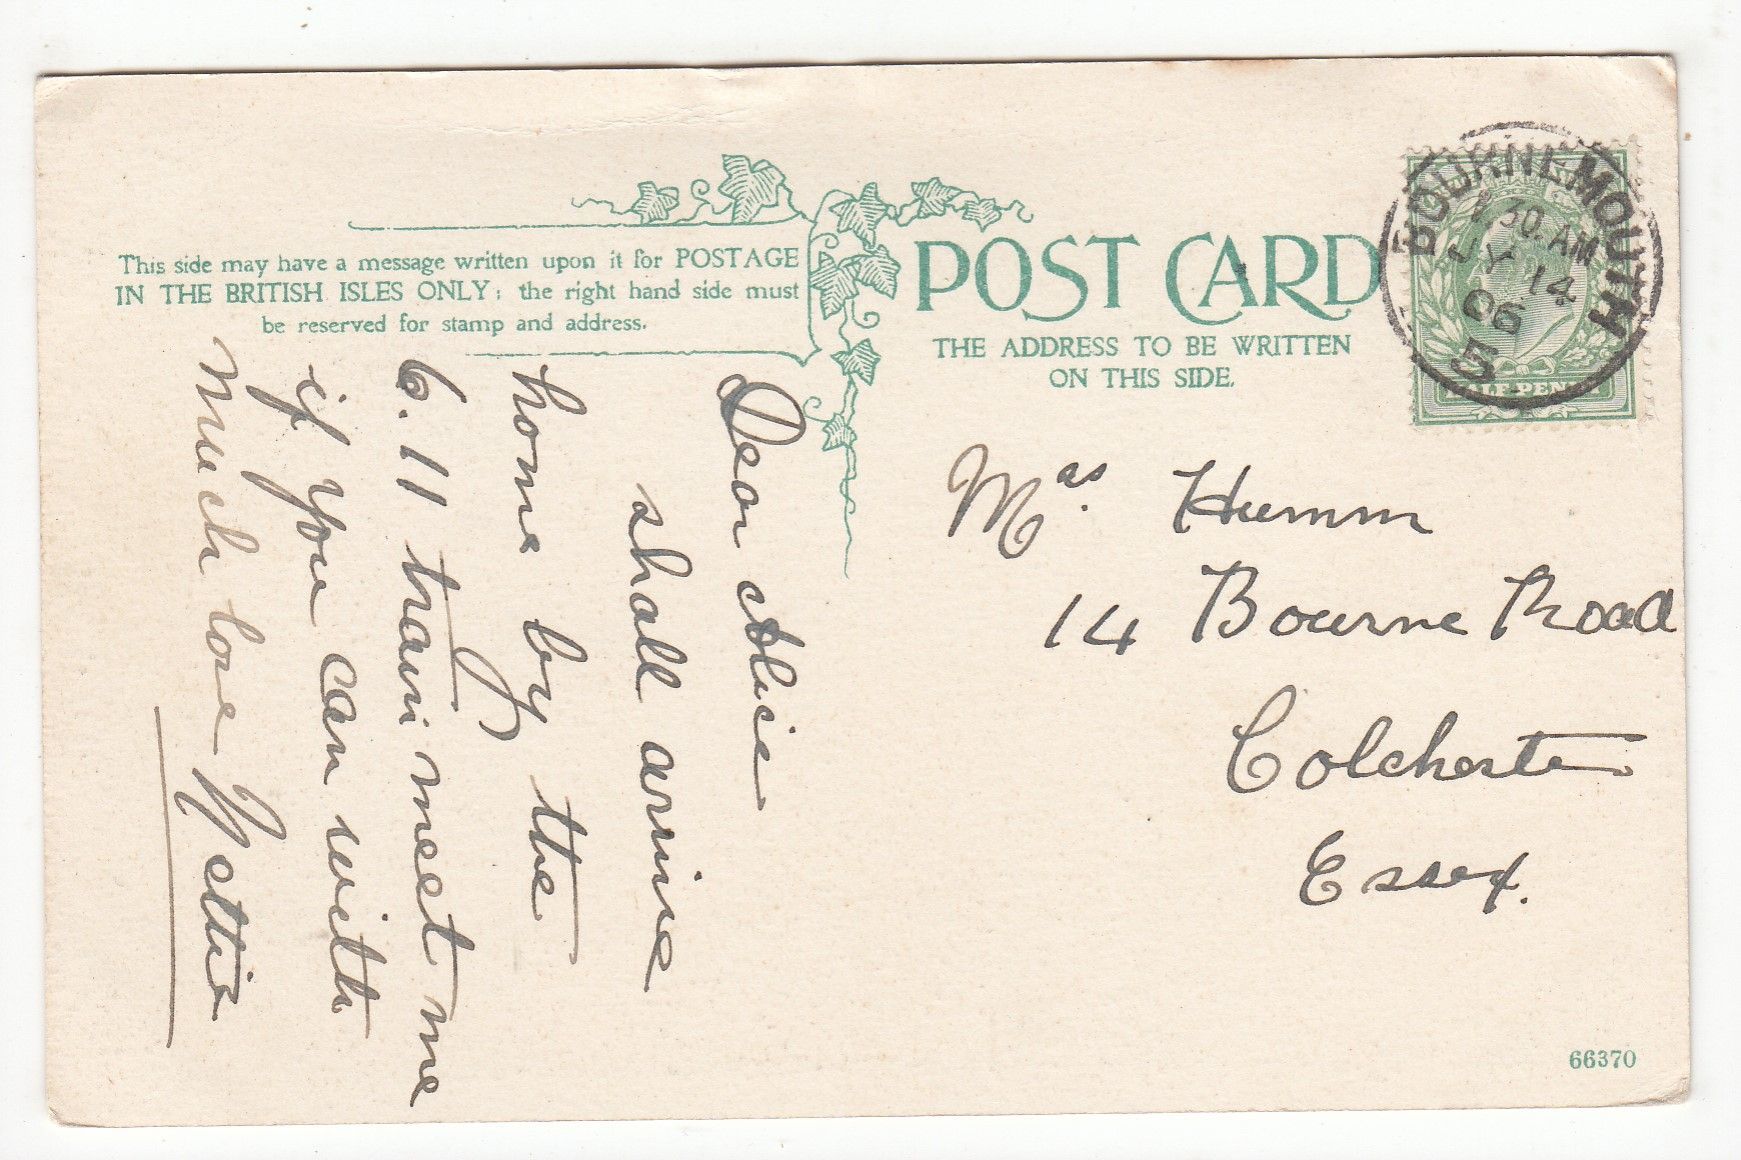 This side may have a message written upon it for POSTAGE
IN THE BRITISH ISLES ONLY: the right hand side must
be reserved for stamp and address.
POST CARD
THE ADDRESS TO BE WRITTEN
ON THIS SIDE.
BOURNEMOUTH
30. AM
JY 14
06
5
HALFPENNY
Dear Alice
shall arrive
home by the
6.11 train meet me
if you can with
much love Nettie
Mrs. Humm
14 Bourne Road
Colchester
Essex.
66370